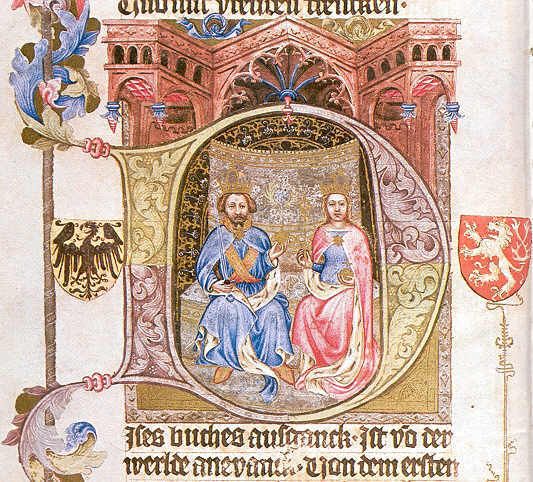 trencken·
Dises buches aufganck· Ist vō der
werlde anevanck· Von dem ersten